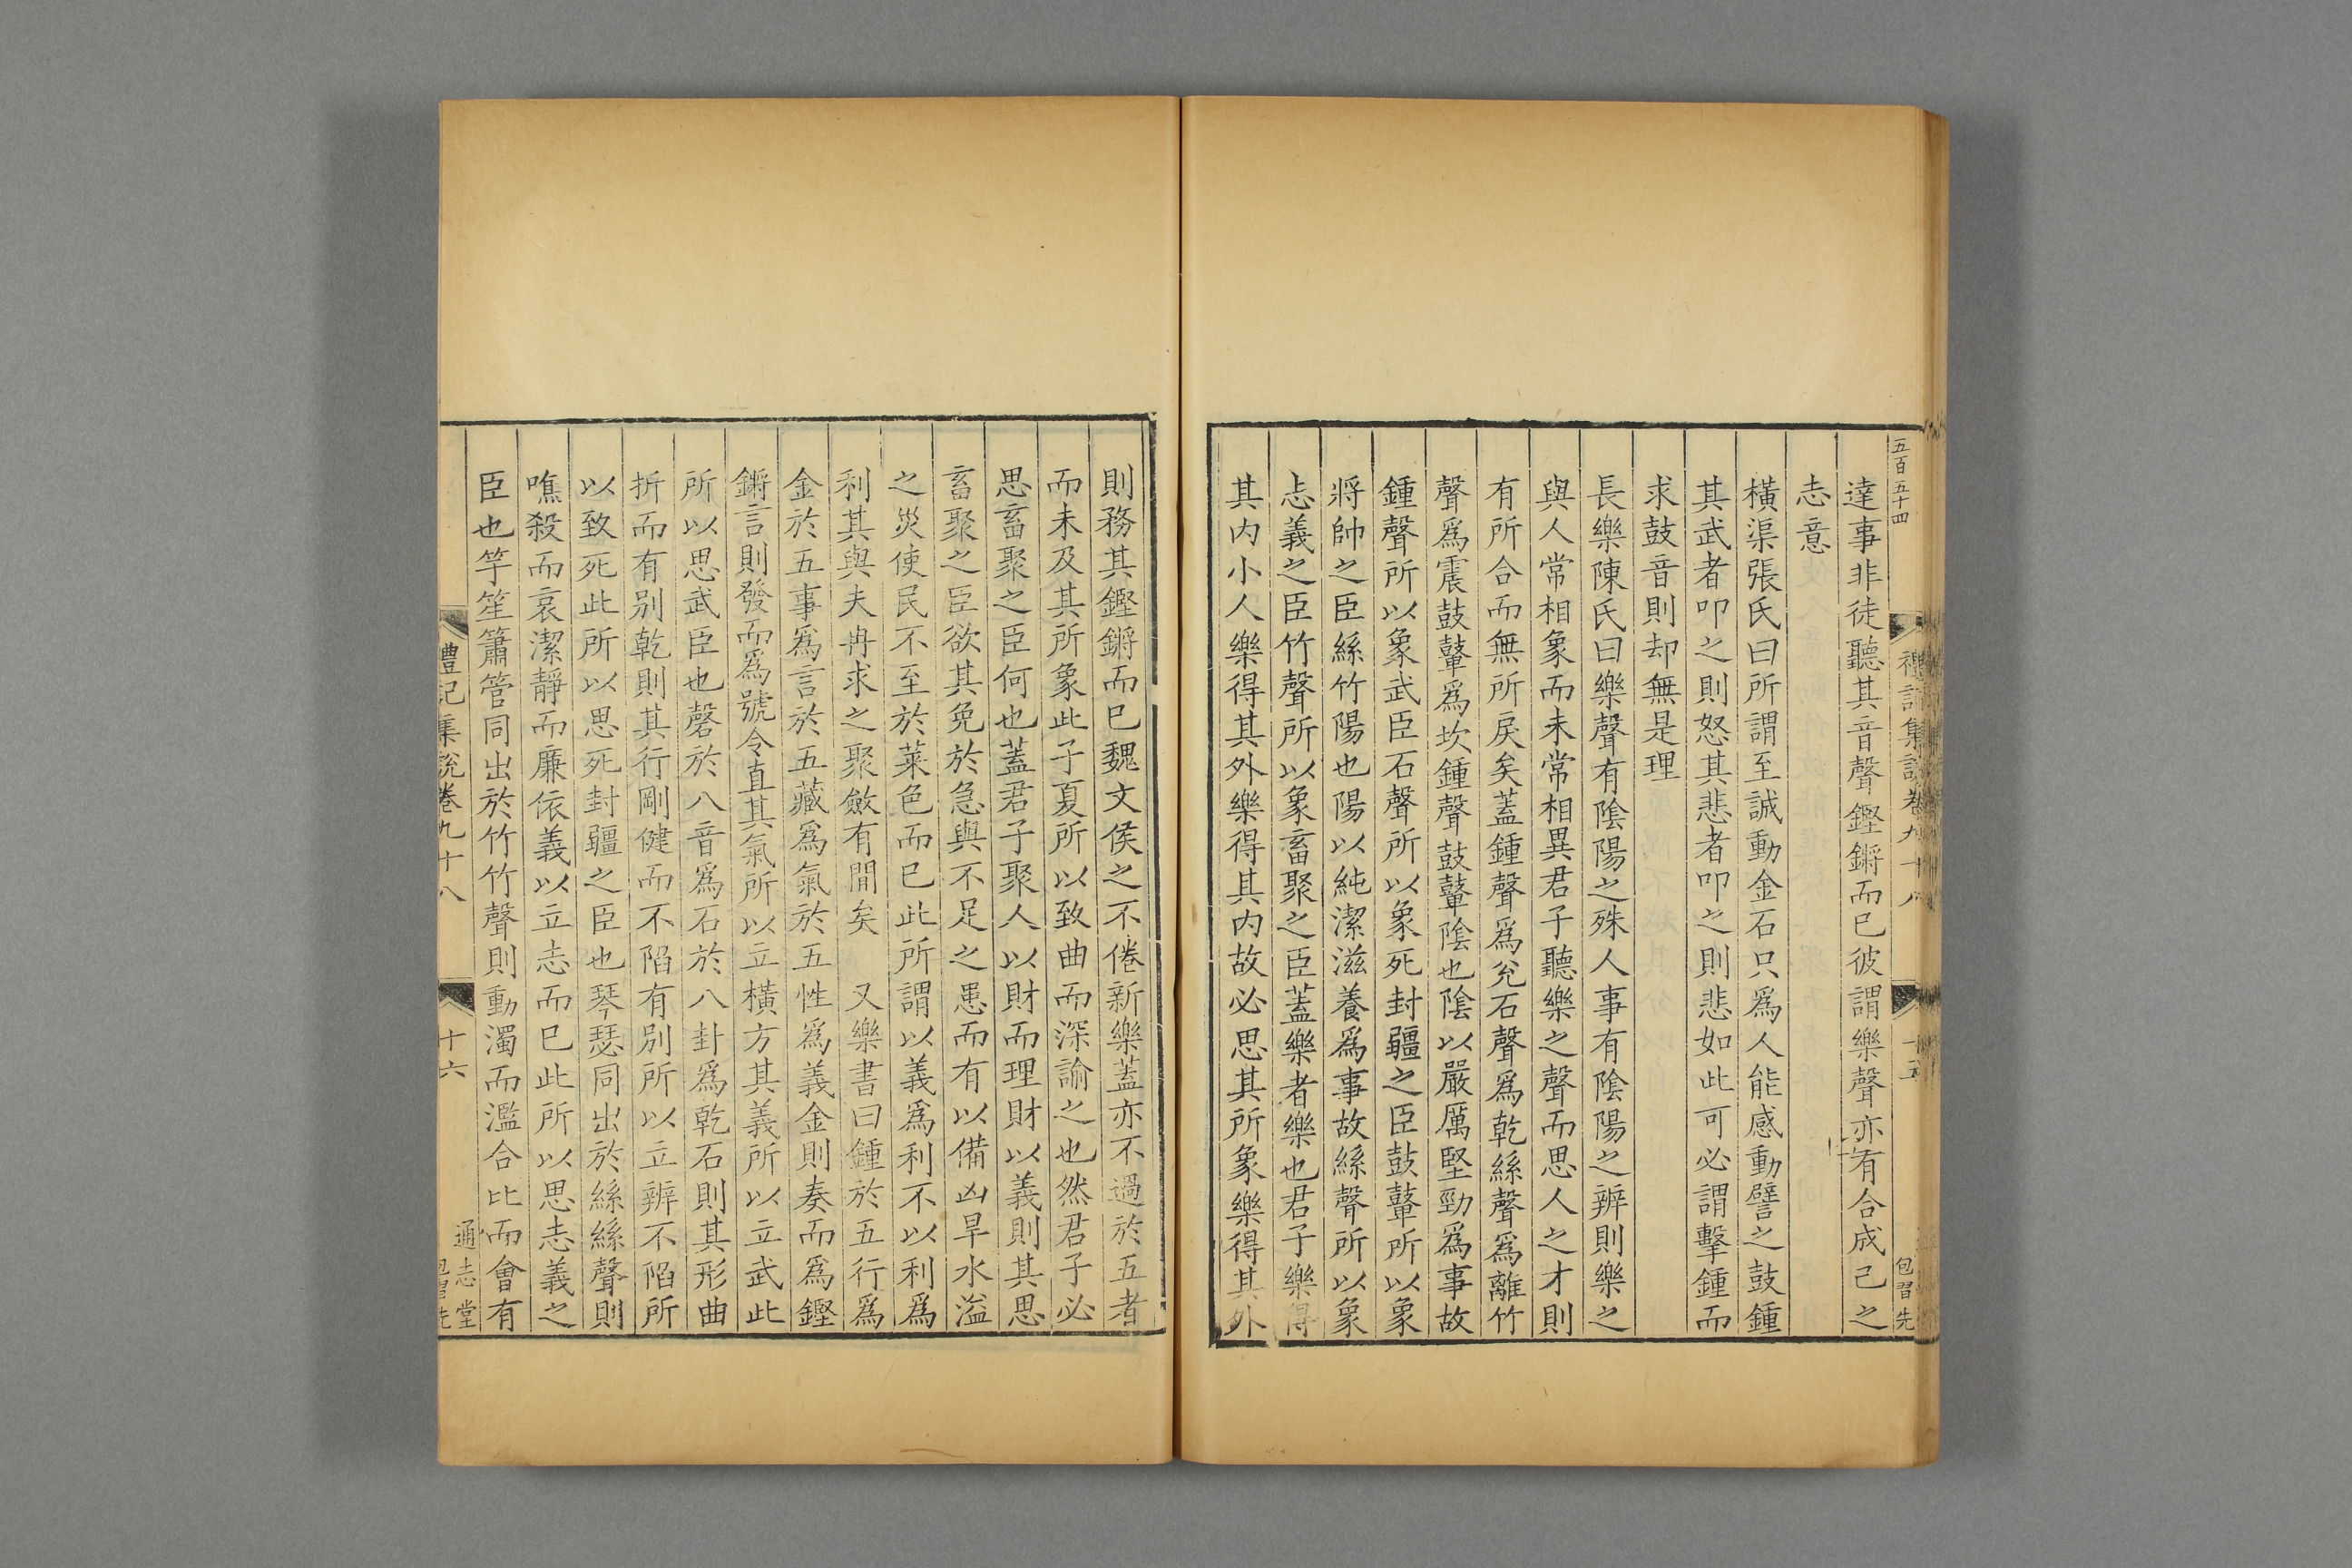 五百五十四
禮記集說卷九十八
十五
包習先
達事非徒聽其音聲鏗鏘而已彼謂樂聲亦有合成己之
志意
橫渠張氏曰所謂至誠動金石只爲人能感動譬之鼓鍾
其武者叩之則怒其悲者叩之則悲如此可必謂擊鍾而
求鼓音則却無是理
長樂陳氏曰樂聲有陰陽之殊人事有陰陽之辨則樂之
與人常相象而未常相異君子聽樂之聲而思人之才則
有所合而無所戾矣蓋鍾聲爲兌石聲爲乾絲聲爲離竹
聲爲震鼓鼙爲坎鍾聲鼓鼙陰也陰以嚴厲堅勁爲事故
鍾聲所以象武臣石聲所以象死封疆之臣鼓鼙所以象
將帥之臣絲竹陽也陽以純潔滋養爲事故絲聲所以象
志義之臣竹聲所以象畜聚之臣蓋樂者樂也君子樂得
其內小人樂得其外樂得其內故必思其所象樂得其外
則務其鏗鏘而已魏文侯之不倦新樂蓋亦不過於五者
而未及其所象此子夏所以致曲而深諭之也然君子必
思畜聚之臣何也蓋君子聚人以財而理財以義則其思
畜聚之臣欲其免於急與不足之患而有以備凶旱水溢
之災使民不至於菜色而已此所謂以義爲利不以利爲
利其與夫冉求之聚斂有閒矣　又樂書曰鍾於五行爲
金於五事爲言於五藏爲氣於五性爲義金則奏而爲鏗
鏘言則發而爲號令直其氣所以立橫方其義所以立武此
所以思武臣也磬於八音爲石於八卦爲乾石則其形曲
折而有別乾則其行剛健而不陷有別所以立辨不陷所
以致死此所以思死封疆之臣也琴瑟同出於絲絲聲則
噍殺而哀潔靜而廉依義以立志而已此所以思志義之
臣也竽笙簫管同出於竹竹聲則動濁而濫合比而會有
禮記集說卷九十八
十六
通志堂
包習先